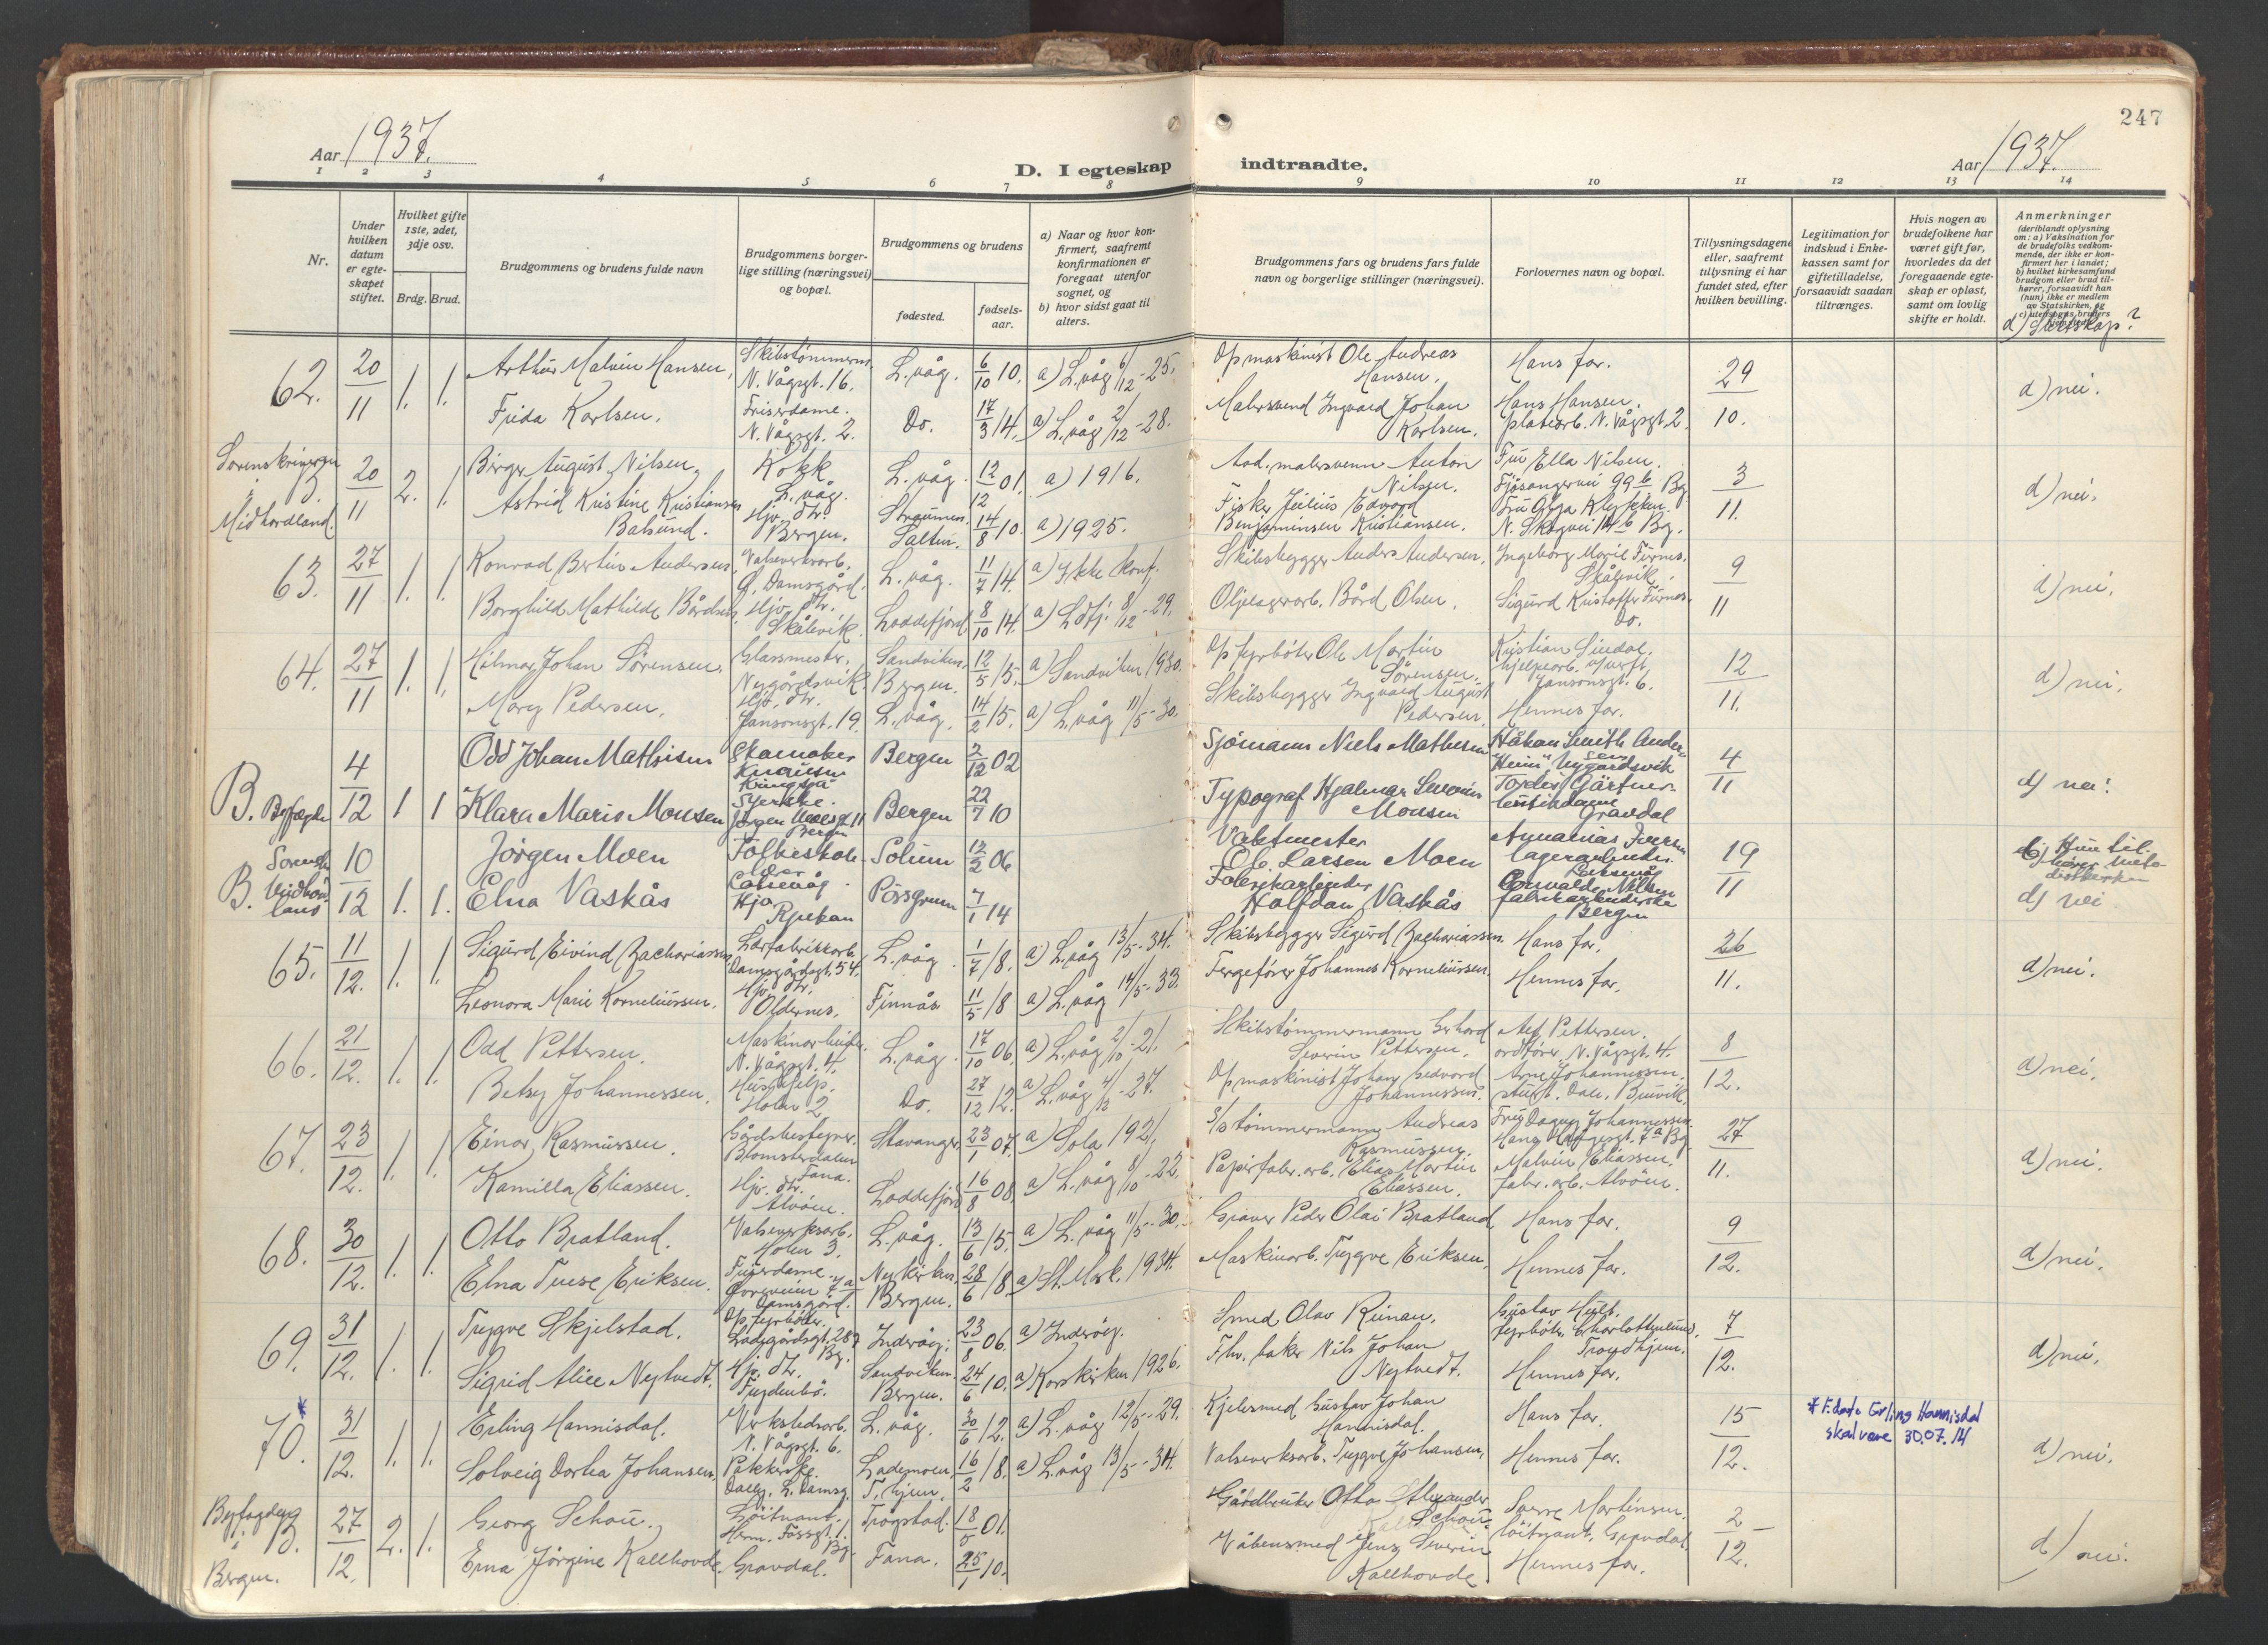 247
Aar 1937.
D. I egteskap indtraadte.
Aar 1937.
1 2 3 4 5 6 7 8 9 10 11 12 13 14
Nr.
Under hvilken datum er egteskapet stiftet.
Hvilket gifte 1ste, 2det, 3dje osv.
Brdg. Brud.
Brudgommens og brudens fulde navn
Brudgommens borgerlige stilling (næringsvei) og bopæl.
Brudgommens og brudens
fødested.
fødselsaar.
a) Naar og hvor konfirmert, saafremt konfirmationen er foregaat utenfor sognet, og
b) hvor sidst gaat til alters.
Brudgommens fars og brudens fars fulde navn og borgerlige stillinger (næringsvei).
Forlovernes navn og bopæl.
Tillysningsdagene eller, saafremt tillysning ei har fundet sted, efter hvilken bevilling.
Legitimation for indskud i Enkekassen samt for giftetilladelse, forsaavidt saadan tiltrænges.
Hvis nogen av brudefolkene har været gift før, hvorledes da det foregaaende egteskap er opløst, samt om lovlig skifte er holdt.
Anmerkninger (deriblandt oplysning om: a) Vaksination for de brudefolks vedkommende, der ikke er konfirmert her i landet; b) hvilket kirkesamfund brudgom eller brud tilhører, forsaavidt han (hun) ikke er medlem av Statskirken, og
d) Slektskap?
62. 20/11 1. 1. Arthur Malvin Hansen, N. Vågsgt. 16. L. våg. 6/10 10. a) L. våg 6/12 - 25. Op maskinist Ole Andreas Hansen. Hans far. 29/10. d) nei.
Frida Karlsen. Friserdame. N. Vågsgt. 2. Do. 17/3 14. a) L. våg 2/12 - 28. Malersvend Ingvald Johan Karlsen. Hans Hansen. platearb. N. Vågsgt. 2.
Sorenskriveren i Midhordland. B. 20/11 2. 1. Birger August Nilsen. Kokk L. våg. L. våg. 12/12 01. a) 1916. Anton Nilsen. Fru Ella Nilsen. Fjøsangervei 99 b Bg 3/11. d) nei.
Astrid Kristine Kristiansen Balsund. Hjv. dtr. Bergen. Straumen. Salten. 14/8 10. a) 1925. Fisker Julius Edvard Benjaminsen Kristiansen. N. Skogvei 14 b Bg.
63. 27/11 1. 1. Konrad Bertin Andersen, Valseverksarb. G. Damsgård. L. våg. 11/7 14. a) Ikke konf. Skibsbygger Anders Andersen. Ingeborg Marie Furnes. Skålevik. 9/11 d) nei.
Borghild Mathilde Bårdsen, Hjv. dtr. Skålevik. Loddefjord 8/10 14. a) Ldfj. 8/12 - 29. Oljelagerarb. Bård Olsen. Sigurd Kristoffer Furnes. Do.
64. 27/11 1. 1. Hilmar Johan Sørensen. Glassmester. Nygårdsvik. Sandviken, Bergen. 12/5 15. a) Sandviken 1930. Op fyrbøter Ole Martin Sørensen. Kristian Sindal. hjelpearb. v/verft. Jansonsgt. 6. 12/11. d) nei.
Mary Pedersen. Hjv. dtr. Jansonsgt. 19. L. våg. 14/2 15. a) L. våg 11/5 - 30. Skibsbygger Ingvald August Pedersen. Hennes far.
B. Byfogden 4/12 1 1 Odd Johan Mathisen Skomaker Bergen 2/12 02 Sjømann Niels Mathisen Håkon Smith Andersen "Heim" Nygårdsvik 4/11 d) nei.
Klara Marie Monsen Syerske. Bergen Bergen 22/7 10 Typograf Hjalmar Severin Monsen Tordis Gärtner. Gravdal
B. Sorenskr. Midhordland 10/12 1. 1. Jørgen Moen Folkeskolelærer Laksevåg. Solum 12/2 06 Vaktmester Ole Larsen Moen Ananias Iversen lagerarbeider Laksevåg 19/11 Hun tilhører Metodistkirken d) nei
Elna Vaskås Hja Rjukan Porsgrunn 7/1 14 Fabrikarbeider Halfdan Vaskås Nilsen Bergen
65. 11/12. 1. 1. Sigurd Eivind Zachariassen Lærfabrikkarb. Damsgårdsgt. 54. L. våg. 1/7 18. a) L. våg 13/5 - 34. Skibsbygger Sigurd Zachariassen. Hans far. 26/11. d) nei.
Leonora Marie Korneliussen. Hjv. dtr. Oldernes. Finnås 11/5 18 a) L. våg 14/5 - 33. Fergefører Johannes Korneliussen. Hennes far.
66. 21/12. 1. 1. Odd Pettersen. Maskinarbeider. N. Vågsgt. 4. L. våg. 17/10 06. a) L. våg 2/10 - 21. Skibstømmermann Gerhard Severin Pettersen. Alf Pettersen. ordfører N. Vågsgt. 4. 8/12. d) nei.
Betsy Johannessen. Hushjelp. Holen 2. Do. 27/12 12. a) L. våg 4/12 - 27. Op maskinist Johan Edvard Johannessen. Arne Johannessen. stud. Dale, Bruvik.
67. 23/12. 1. 1. Einar Rasmussen. Gårdsbestyrer. Blomsterdalen Fana. Stavanger. 23/1 07. a) Sola 1921. S/s tømmermann Andreas Rasmussen. Fru Dagny Johannessen. 27/11. d) nei.
Kamilla Eliassen. Hjv. dtr. Alvøen. Loddefjord 16/8 08. a) L. våg 8/10 - 22. Papirfabr. arb. Elias Martin Eliassen. Malvin Eliassen. fabr. arb. Alvøen.
68. 30/12. 1. 1. Otto Bratland. Valseverksarb. Holen 3. L. våg. 13/6 15. a) L. våg 11/5 - 30. Graver Peder Olai Bratland. Hans far. 9/12. d) nei.
Elna Turse Eriksen. Friserdame. Damsgård. Nykirken, Bergen. 28/6 18. a) St. Mark. 1934. Maskinarb. Trygve Eriksen. Hennes far.
69. 31/12. 1. 1. Trygve Skjelstad. Op. fyrbøter. Ladegårdsgt. 28 Bg. Inderøy. 23/8 06. a) Inderøy. Smed Olav Reinan. Gustav Hult. fyrbøter. Charlottenlund, Trondhjem. 7/12. d) nei.
Sigrid Alice Nytvedt. Hjv. dtr. Frydenbø. Sandviken. Bergen. 24/6 10. a) Korskirken 1926. Fhv. baker Nils Johan Nytvedt. Hennes far.
70.* 31/12. 1. 1. Erling Hannisdal. Verkstedsarb. N. Vågsgt. 6. L. våg. 30/6 12. a) L. våg 12/5 - 29. Kjelesmed Gustav Johan Hannisdal. Hans far. 15/12. * F.dato Erling Hannisdal skal være 30.07.14 d) nei.
Solveig Dorthea Johansen. Pakkerske. L. Damsg. Lademoen, T. hjem. 16/2 18. a) L. våg 13/5 - 34. Valseverksarb. Trygve Johansen. Hennes far.
Byfogden i Bergen. B. 27/12. 2. 1. Georg Schou. Løitnant. Herm. Fossgt. 1. Bg. Trøgstad. 18/5 01. Gårdbruker Otto Alexander Schou. Sverre Martinsen. løitnant. Gravdal. 2/12. d) nei.
Erna Jørgine Kallhovde. Gravdal. Fana. 25/1 10. Våbensmed Jens Severin Kallhovde Hennes far.